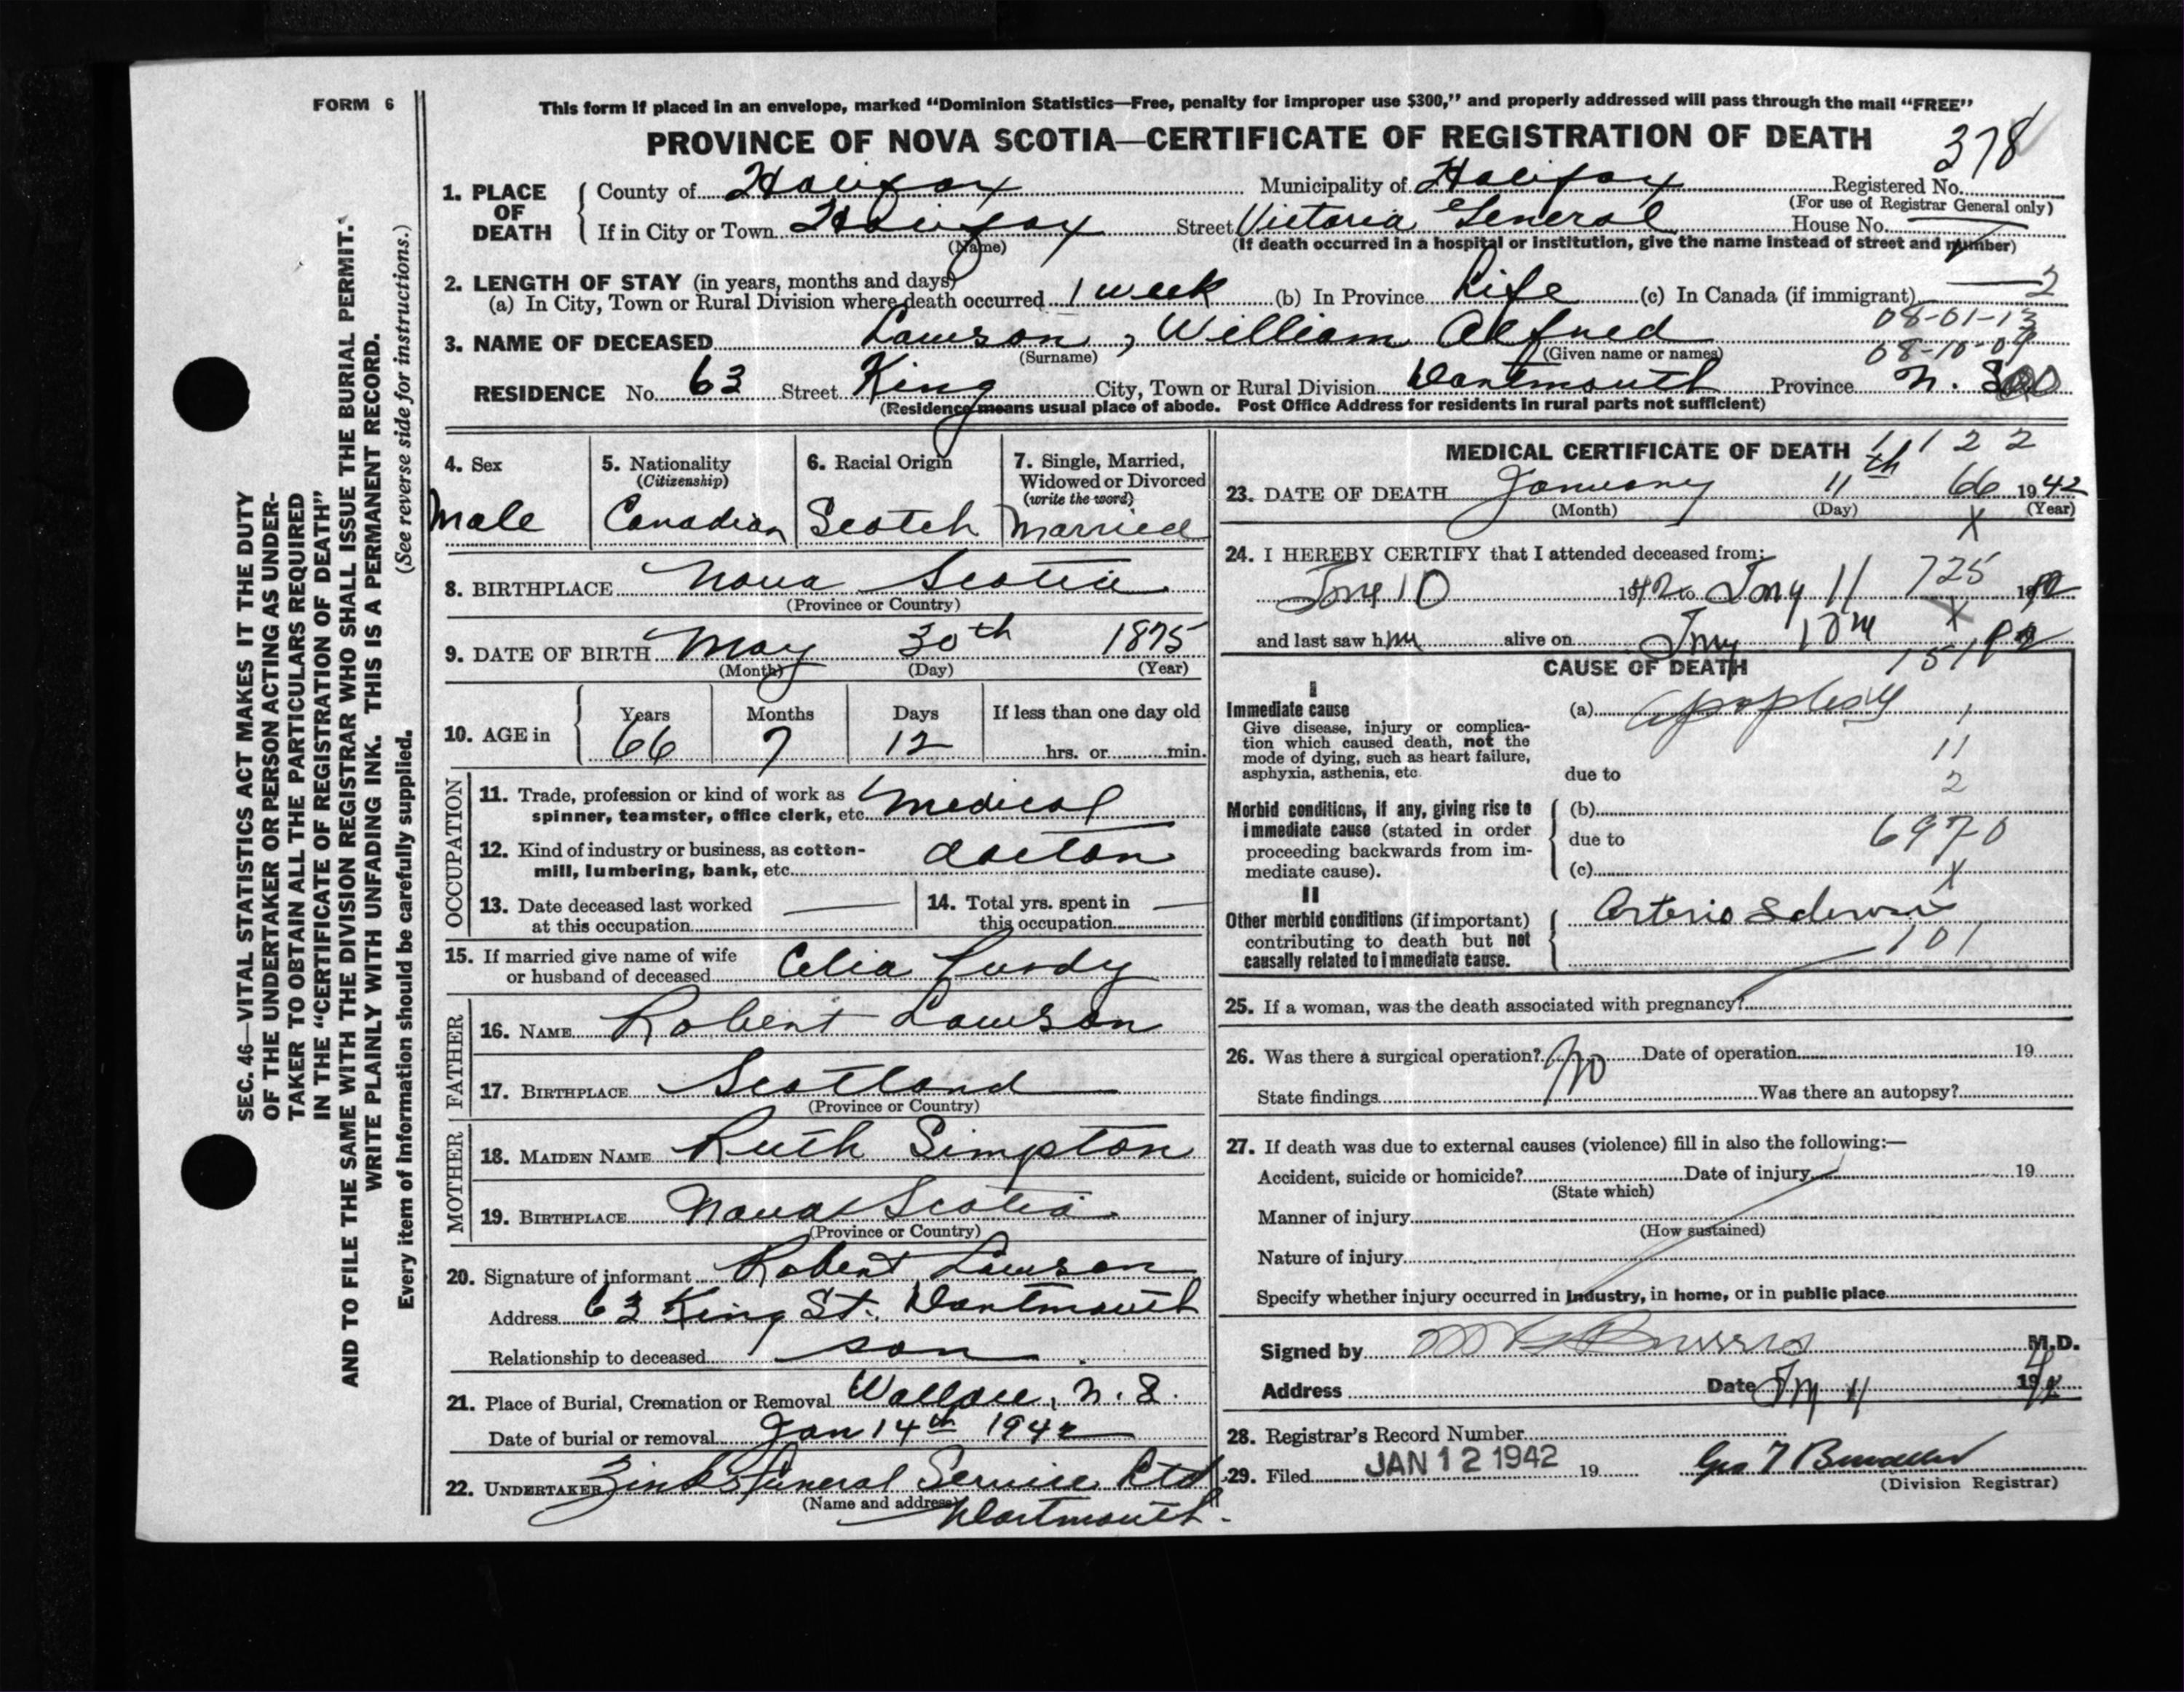 FORM 6
This form if placed in an envelope, marked "Dominion Statistics—Free, penalty for improper use $300," and properly addressed will pass through the mail "FREE"
PROVINCE OF NOVA SCOTIA—CERTIFICATE OF REGISTRATION OF DEATH
378
1. PLACE OF DEATH County of Halifax Municipality of Halifax Registered No.
(For use of Registrar General only)
If in City or Town Halifax Street Victoria General House No.
(Name) (If death occurred in a hospital or institution, give the name instead of street and number)
2. LENGTH OF STAY (in years, months and days)
(a) In City, Town or Rural Division where death occurred 1 week (b) In Province Life (c) In Canada (if immigrant) 2
08-01-13
3. NAME OF DECEASED Lawson, William Alfred
(Surname) (Given name or names)
08-10-09
RESIDENCE No. 63 Street King City, Town or Rural Division Dartmouth Province N. S.
(Residence means usual place of abode. Post Office Address for residents in rural parts not sufficient)
4. Sex
Male
5. Nationality
(Citizenship)
Canadian
6. Racial Origin
Scotch
7. Single, Married,
Widowed or Divorced
(write the word)
Married
8. BIRTHPLACE Nova Scotia
(Province or Country)
9. DATE OF BIRTH May 30th 1875
(Month) (Day) (Year)
10. AGE in Years Months Days If less than one day old
66 7 12 hrs. or min.
OCCUPATION
11. Trade, profession or kind of work as
spinner, teamster, office clerk, etc. Medical
12. Kind of industry or business, as cotton-
mill, lumbering, bank, etc. doctor
13. Date deceased last worked
at this occupation
14. Total yrs. spent in
this occupation
15. If married give name of wife
or husband of deceased Celia Purdy
FATHER
16. NAME Robert Lawson
17. BIRTHPLACE Scotland
(Province or Country)
MOTHER
18. MAIDEN NAME Ruth Simpton
19. BIRTHPLACE Nova Scotia
(Province or Country)
20. Signature of informant Robert Lawson
Address 63 King St. Dartmouth
Relationship to deceased son
21. Place of Burial, Cremation or Removal Wallace, N. S.
Date of burial or removal Jan 14th 1942
22. UNDERTAKER Zink's Funeral Service Ltd
(Name and address)
Dartmouth.
MEDICAL CERTIFICATE OF DEATH 1 1 2 2
23. DATE OF DEATH January 11th 66 1942
(Month) (Day) (Year)
X
24. I HEREBY CERTIFY that I attended deceased from:
Jny 10 1942 to Jny 11 725 19
and last saw him alive on Jny X
CAUSE OF DEATH
I
Immediate cause
Give disease, injury or complica-
tion which caused death, not the
mode of dying, such as heart failure,
asphyxia, asthenia, etc.
(a) Apoplexy
1
11
due to
2
Morbid conditions, if any, giving rise to
immediate cause (stated in order
proceeding backwards from im-
mediate cause).
(b)
due to 6970
(c) X
II
Other morbid conditions (if important)
contributing to death but not
causally related to immediate cause.
Arterio Sclerosis
101
25. If a woman, was the death associated with pregnancy?
26. Was there a surgical operation? No Date of operation 19
State findings Was there an autopsy?
27. If death was due to external causes (violence) fill in also the following:—
Accident, suicide or homicide? Date of injury 19
(State which)
Manner of injury
(How sustained)
Nature of injury
Specify whether injury occurred in Industry, in home, or in public place
Signed by M.D.
Address Date 19
28. Registrar's Record Number
29. Filed JAN 12 1942 19
(Division Registrar)
SEC. 46—VITAL STATISTICS ACT MAKES IT THE DUTY
OF THE UNDERTAKER OR PERSON ACTING AS UNDER-
TAKER TO OBTAIN ALL THE PARTICULARS REQUIRED
IN THE "CERTIFICATE OF REGISTRATION OF DEATH"
AND TO FILE THE SAME WITH THE DIVISION REGISTRAR WHO SHALL ISSUE THE BURIAL PERMIT.
WRITE PLAINLY WITH UNFADING INK. THIS IS A PERMANENT RECORD.
Every item of Information should be carefully supplied. (See reverse side for instructions.)